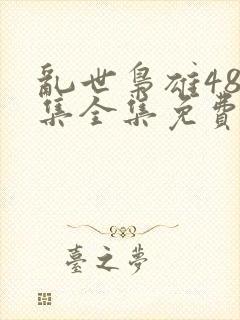 亂世梟雄48
集全集免費
臺之夢